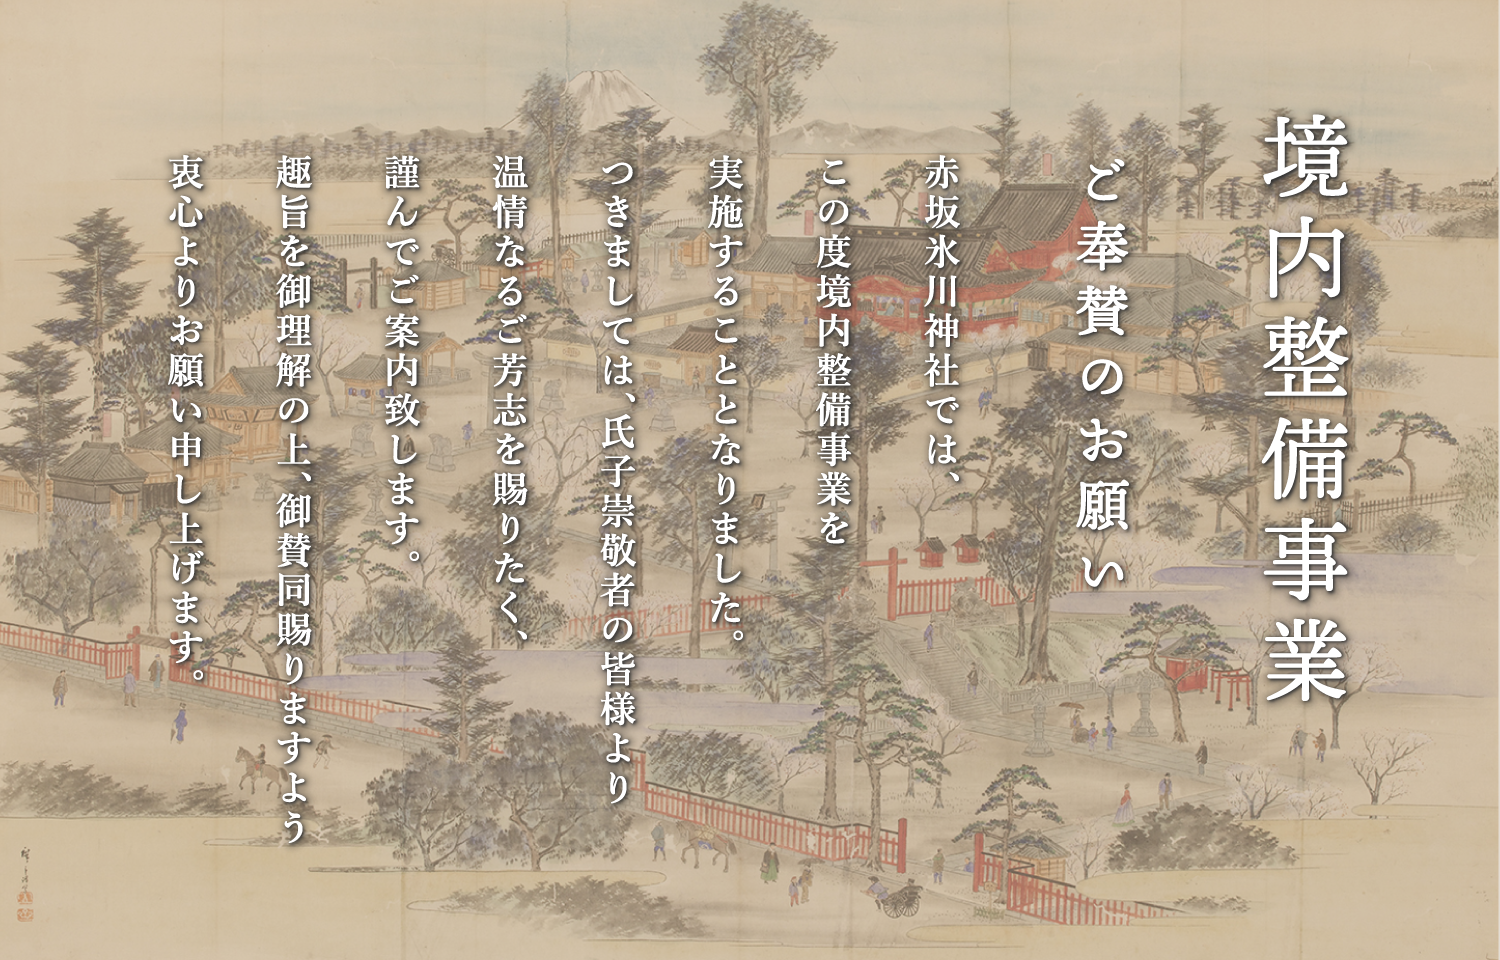 境内整備事業
ご奉賛のお願い
赤坂氷川神社では、
この度境内整備事業を
実施することとなりました。
つきましては、氏子崇敬者の皆様より
温情なるご芳志を賜りたく、
謹んでご案内致します。
趣旨を御理解の上、御賛同賜りますよう
衷心よりお願い申し上げます。